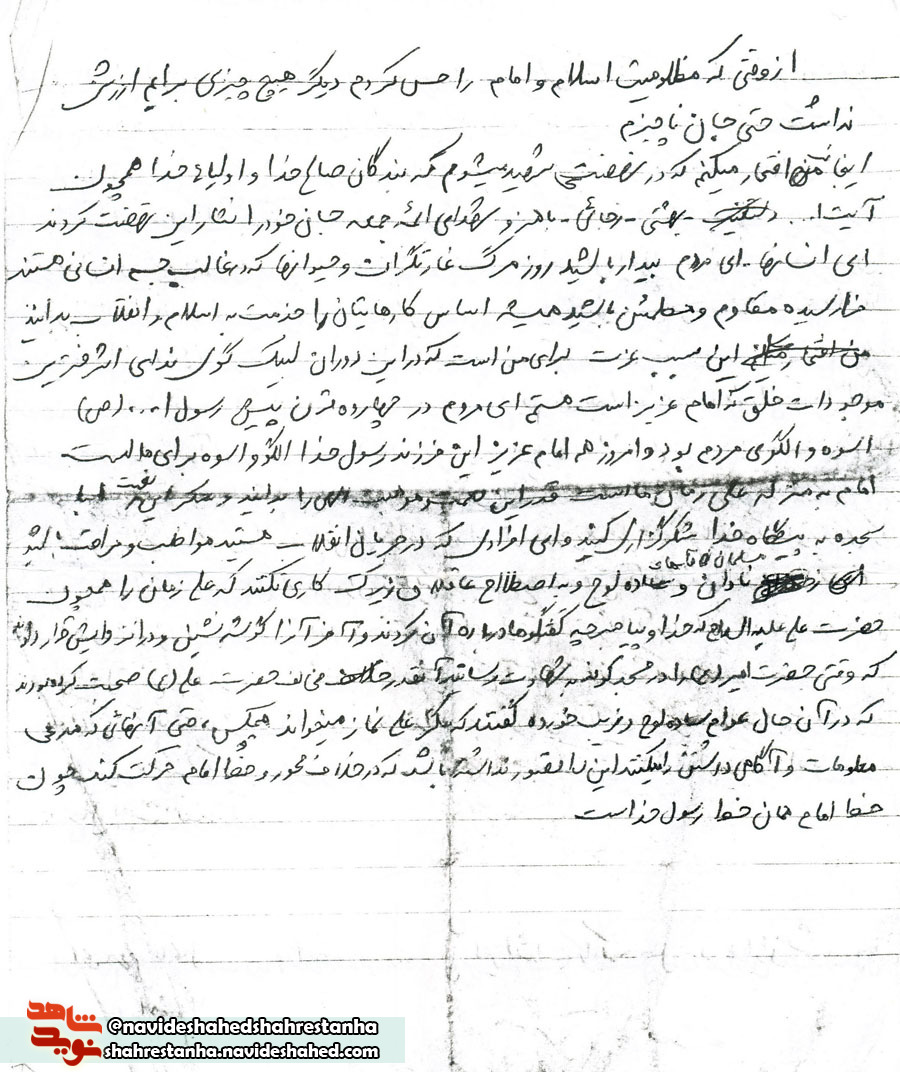 از وقتی که مظلومیت اسلام و امام را حس کردم دیگر هیچ چیزی برایم ارزش
نداشت حتی جان ناچیزم
اینجانب افتخار میکنم که در نهضتی شهید میشوم که بندگان صالح خدا و اولیاء خدا همچون
آیت ا... بهشتی - رجائی - باهنر و شهدای ائمه جمعه جان خود را نثار این نهضت کردند
ای انسانها - ای مردم بیدار باشید روز مرگ غارتگران و حیوانها که در غالب جسم انسانی هستند
فرا رسیده مقاوم و مطمئن باشید همیشه اساس کارهایتان را خدمت به اسلام و انقلاب بدانید
این سبب عزت برای من است که در این دوران لبیک گوی ندای اشرفترین
موجودات خلق که امام عزیز است هستم ای مردم در چهارده قرن پیش رسول ا... (ص)
اسوه و الگوی مردم بود و امروز هم امام عزیز این فرزند رسول خدا الگو و اسوه برای ماست
امام به منزله علی زمان ما است قدر این نعمت و موهبت را بدانید و شکر این نعمت
سجده به پیشگاه خدا شکرگزاری کنید و ای افرادی که در جریان انقلاب هستید مواظب و مراقب باشید
مسلمان
نادان و ساده لوح و به اصطلاح عاقل و زیرک کاری نکنند که علی زمان را همچون
حضرت علی علیه السلام که خدا و پیامبر چه گفتگوها درباره آن کردند و آخر آنرا گوشه نشین و در انزوایش قرار دادند
که وقتی حضرت امیر (ع) را در مسجد کوفه به شهادت رساندند آنقدر خلاف حضرت علی (ع) صحبت کرده بودند
که در آن حال عوام ساده لوح و فریب خورده گفتند که مگر علی نماز میخواند هیچکس، حتی آنهائی که مدعی
معلومات و آگاهی داشتن را میکنند این را تصور نداشته باشد که در خلاف محور و خط امام حرکت کند چون
خط امام همان خط رسول خداست
شاهد
نوید
@navideshahedshahrestanha
shahrestanha.navideshahed.com